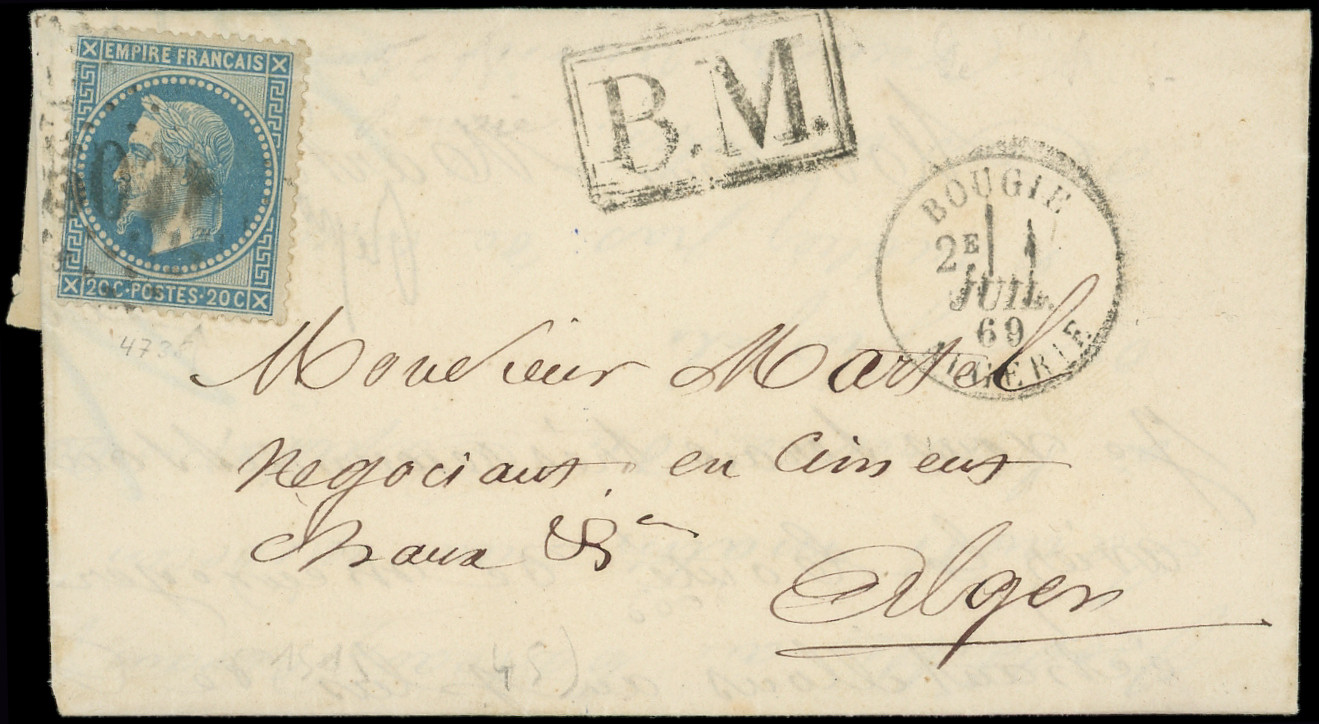 EMPIRE FRANÇAIS
20C·POSTES·20C
B.M.
BOUGIE
2E 1
JUIL.
69
ALGERIE
Monsieur Martel
Negociant en Ciment
Chaux &a
Alger